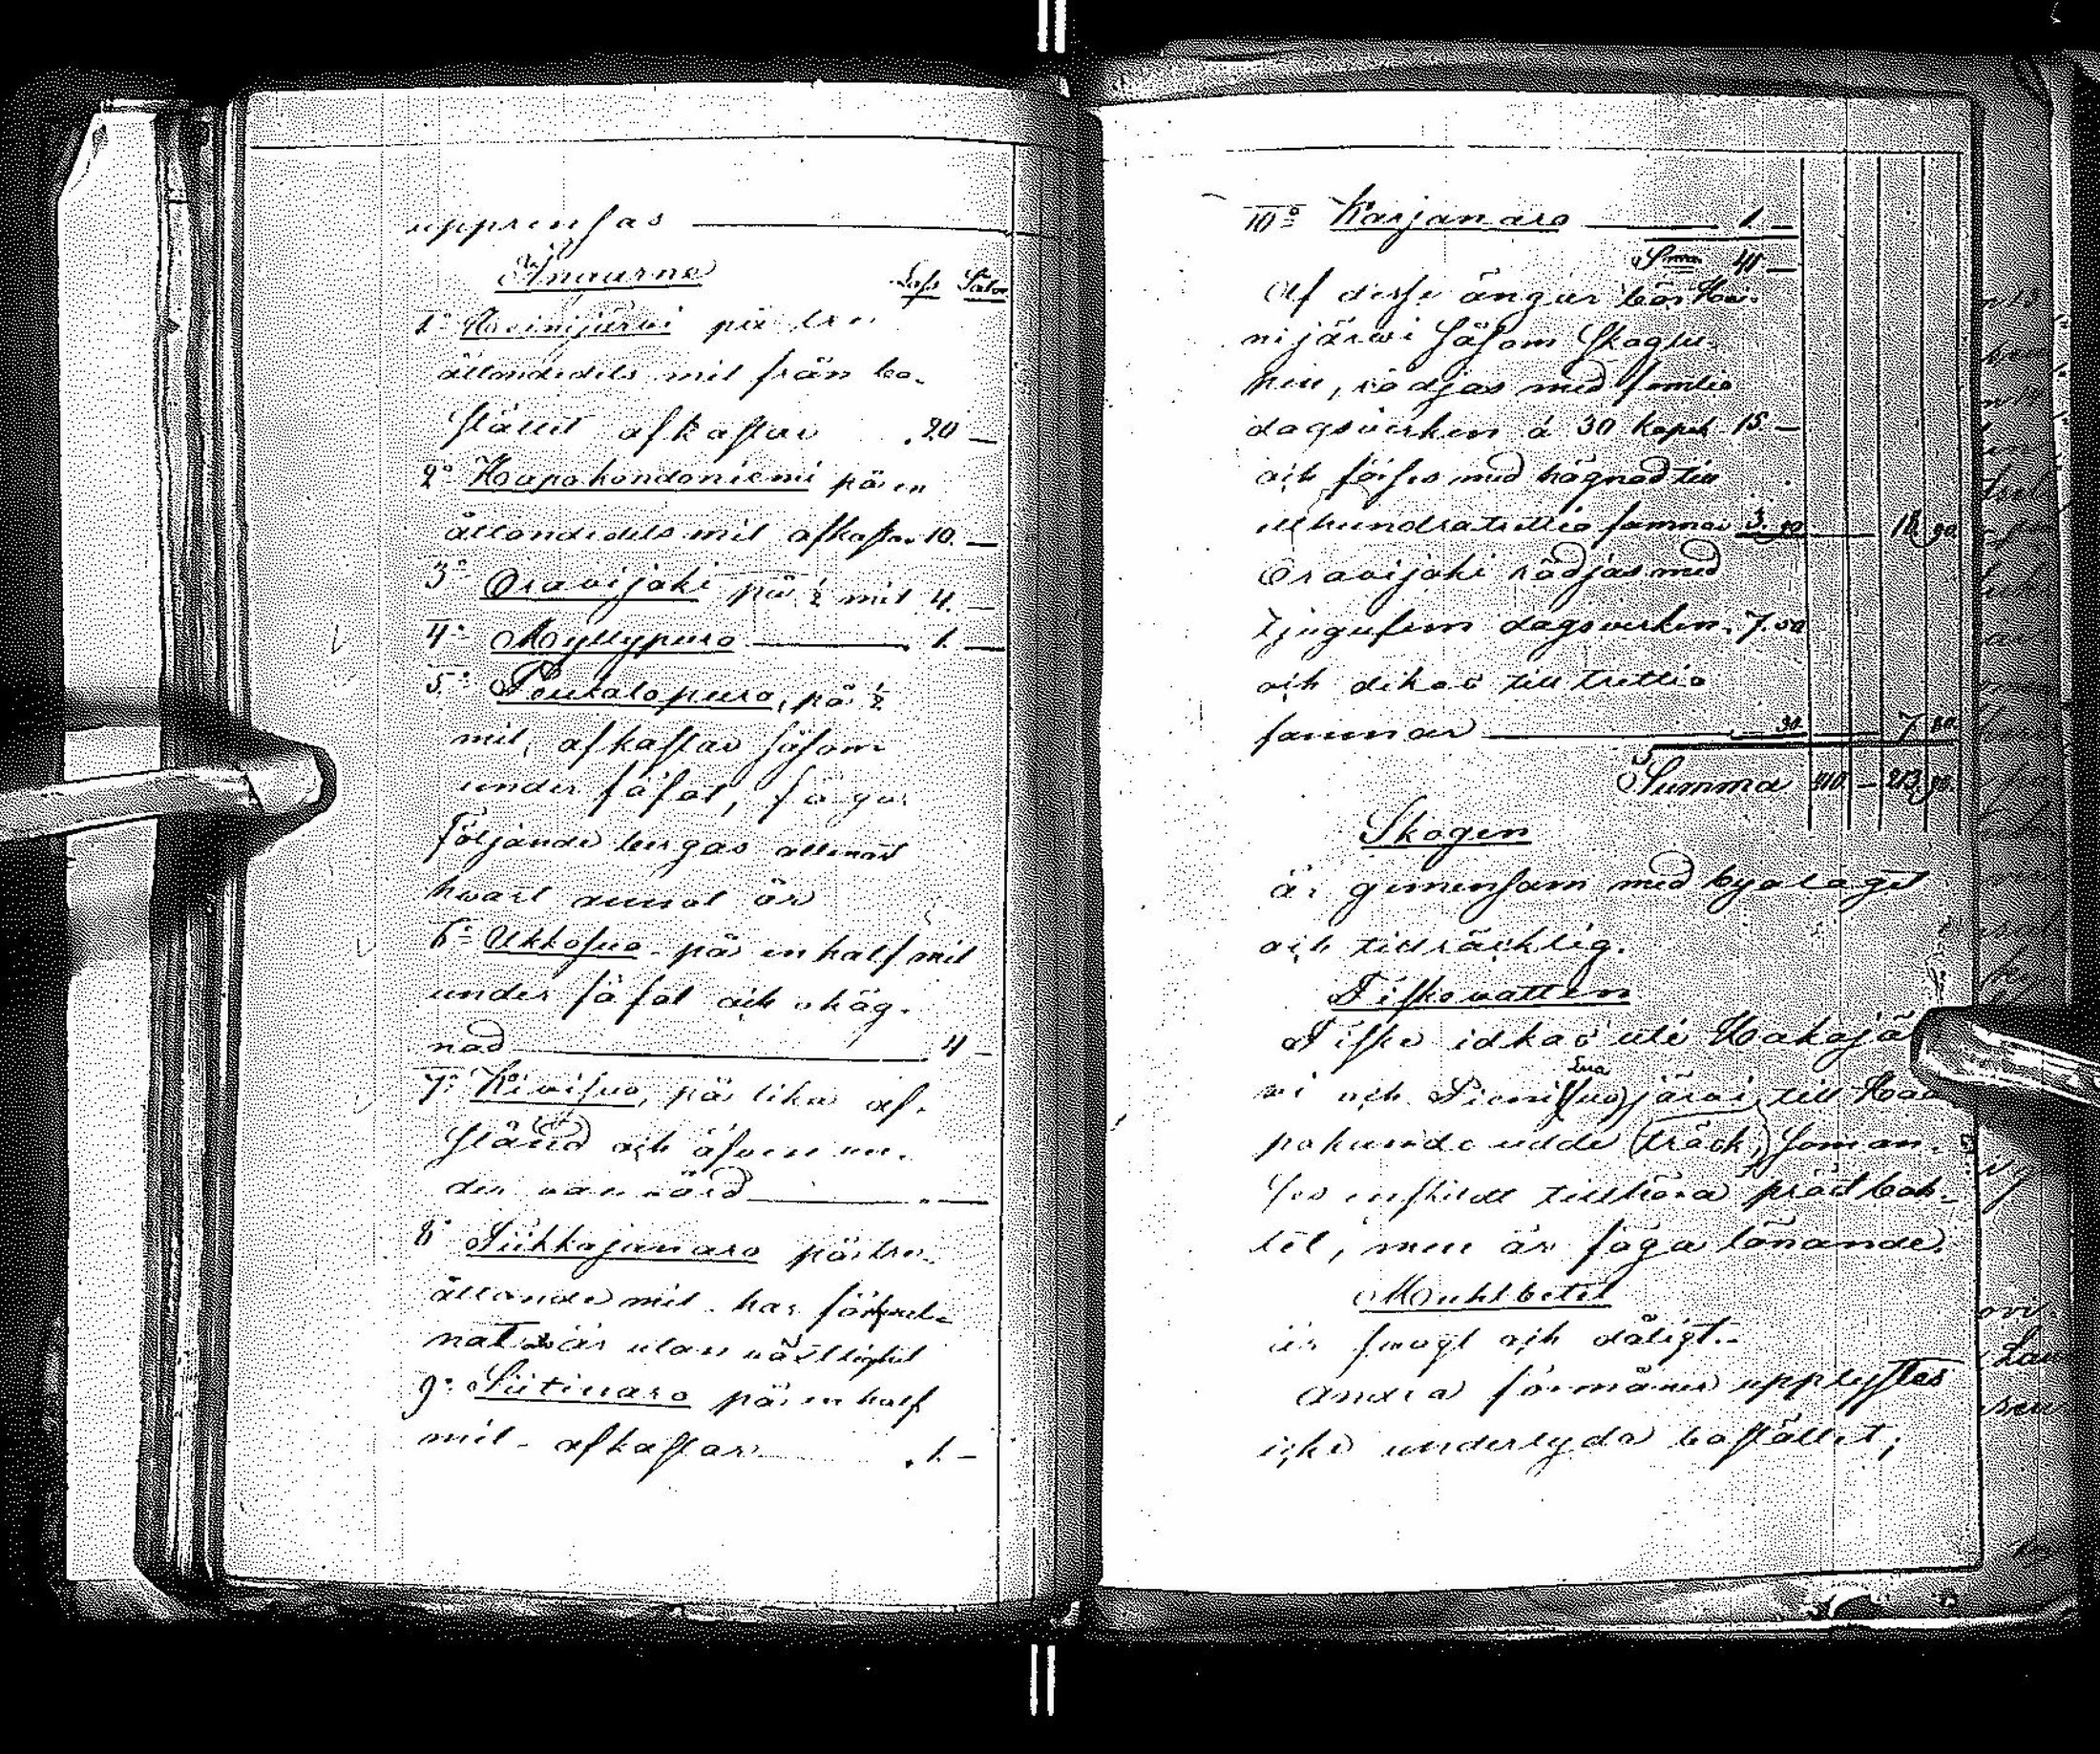 upprensas
Ängarne Lass Såtar
1o Heinijärwi på tre
åttondedels mil från bo-
stället afkastar 20 —
2o Haapakondoniemi på en
åttondedels mil afkastar 10. —
3o Oravijoki på ½ mil 4. —
4o Myllypuro 1. —
5o Poutalopuro, på ½
mil, afkastar såsom
under fäfot, föga
följande bergas allenast
hwart annat år
6o Ukkosuo - på en half mil
under fäfot och ohäg-
nad 4 —
7o Kivisuo, på lika af-
stånd och äfven un-
der wanwård
8o Tiikkajanaro på tre
åttonde mil - har förfal-
nat är utan växtlighet
9o Siitinaro på en half
mil - afkastar 1. —
10o Karjanaro 1. —
Sma 41 —
Af desse ängar bör Hei-
nijärwi såsom skoglu-
pen, rödjas med femtio
dagsverken á 30 kopek 15. —
och förses med hägnad till
etthundratrettio famnar 3. 90 18. 90.
Oravijoki rödjas med
tjugufem dagsverken 7.50
och dikas till trettio
famnar 30 7. 80.
Summa 410. — 213. 90.
Skogen
är gemensam med byalaget
och tillräcklig.
Fiskevatten
Fiske idkas uti Hakajä
vi och Pieni (suo) järvi, till Haa
pakumdo udde (träsk,) som an-
ses enskildt tillhöra prästbol-
let, men är föga lönande.
Muhlbetet
är swagt och dåligt.
Andra förmåner upplystes
icke underlyda bostället;